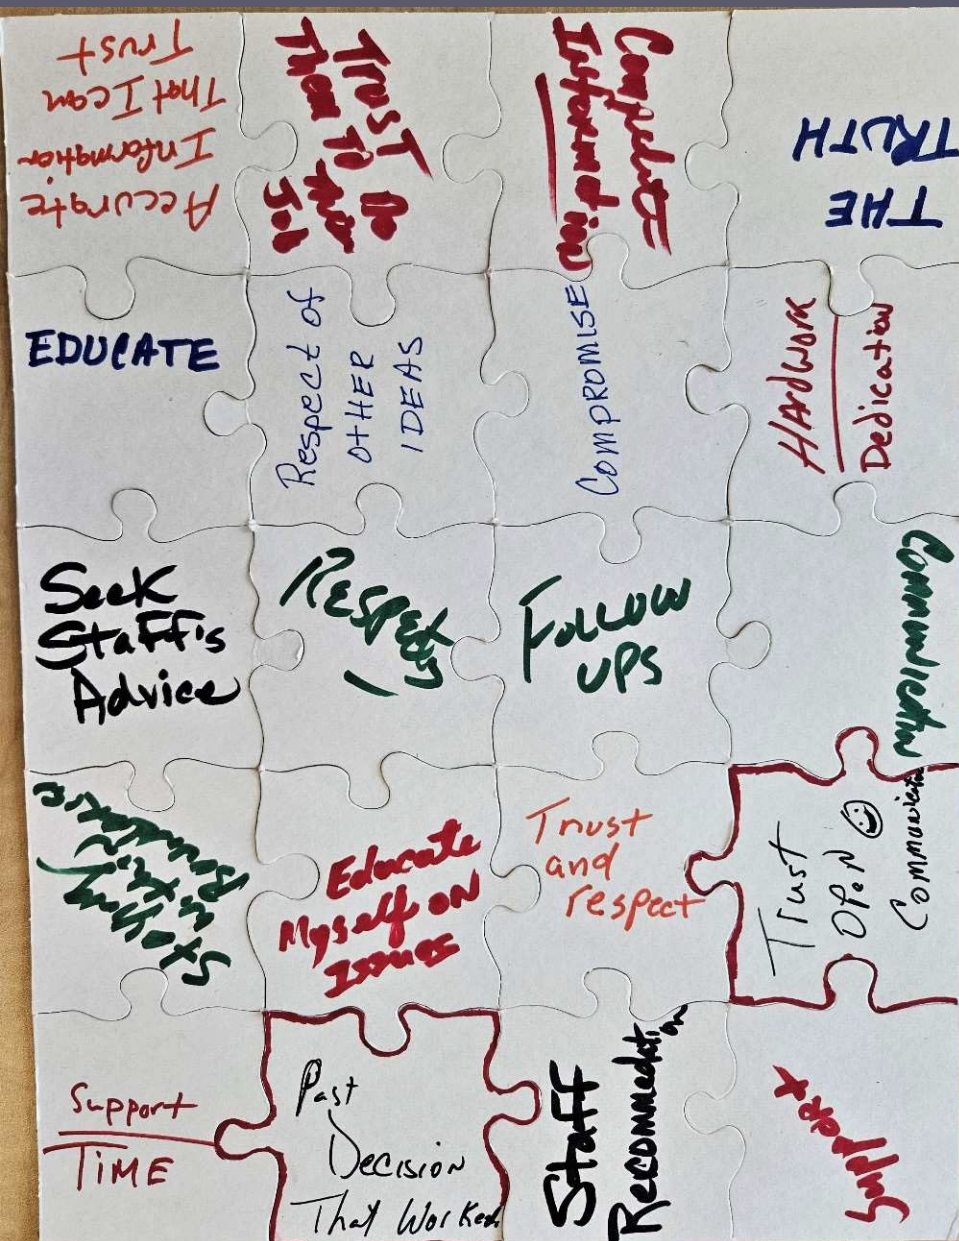 Accurate
Information
That I can
Trust
Trust
Them To Do
Their
Job
Complete
Information
THE
TRUTH
EDUCATE
Respect of
OTHER
IDEAS
COMPROMISE
HARDWORK
Dedication
Seek
Staff's
Advice
Respect
FOLLOW
UPS
Communication
Educate
Myself ON
Issues
Trust
and
respect
Trust
OPeN
Communication
Support
TIME
Past
Decision
That Worked
Staff
Recommedation
Support